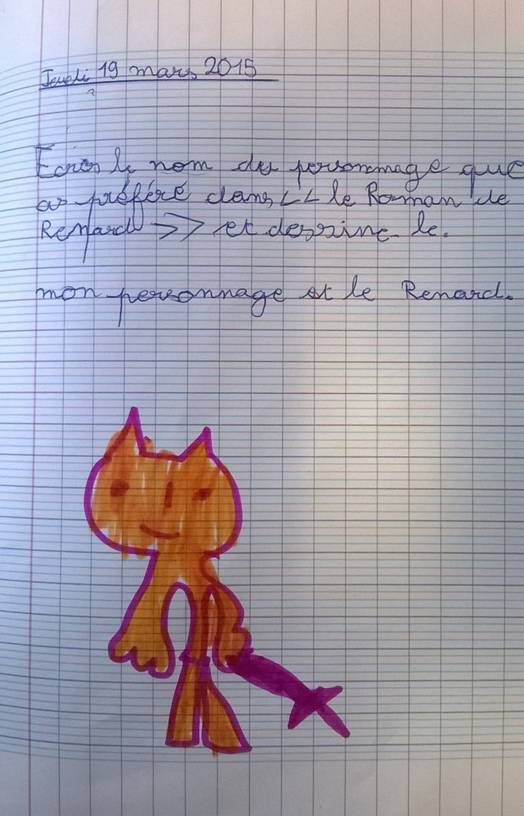 Jeudi 19 mars 2015
Ecris le nom du personnage que
as préféré dans << le Roman de
Renard >> et dessine le.
mon personnage et le Renard.